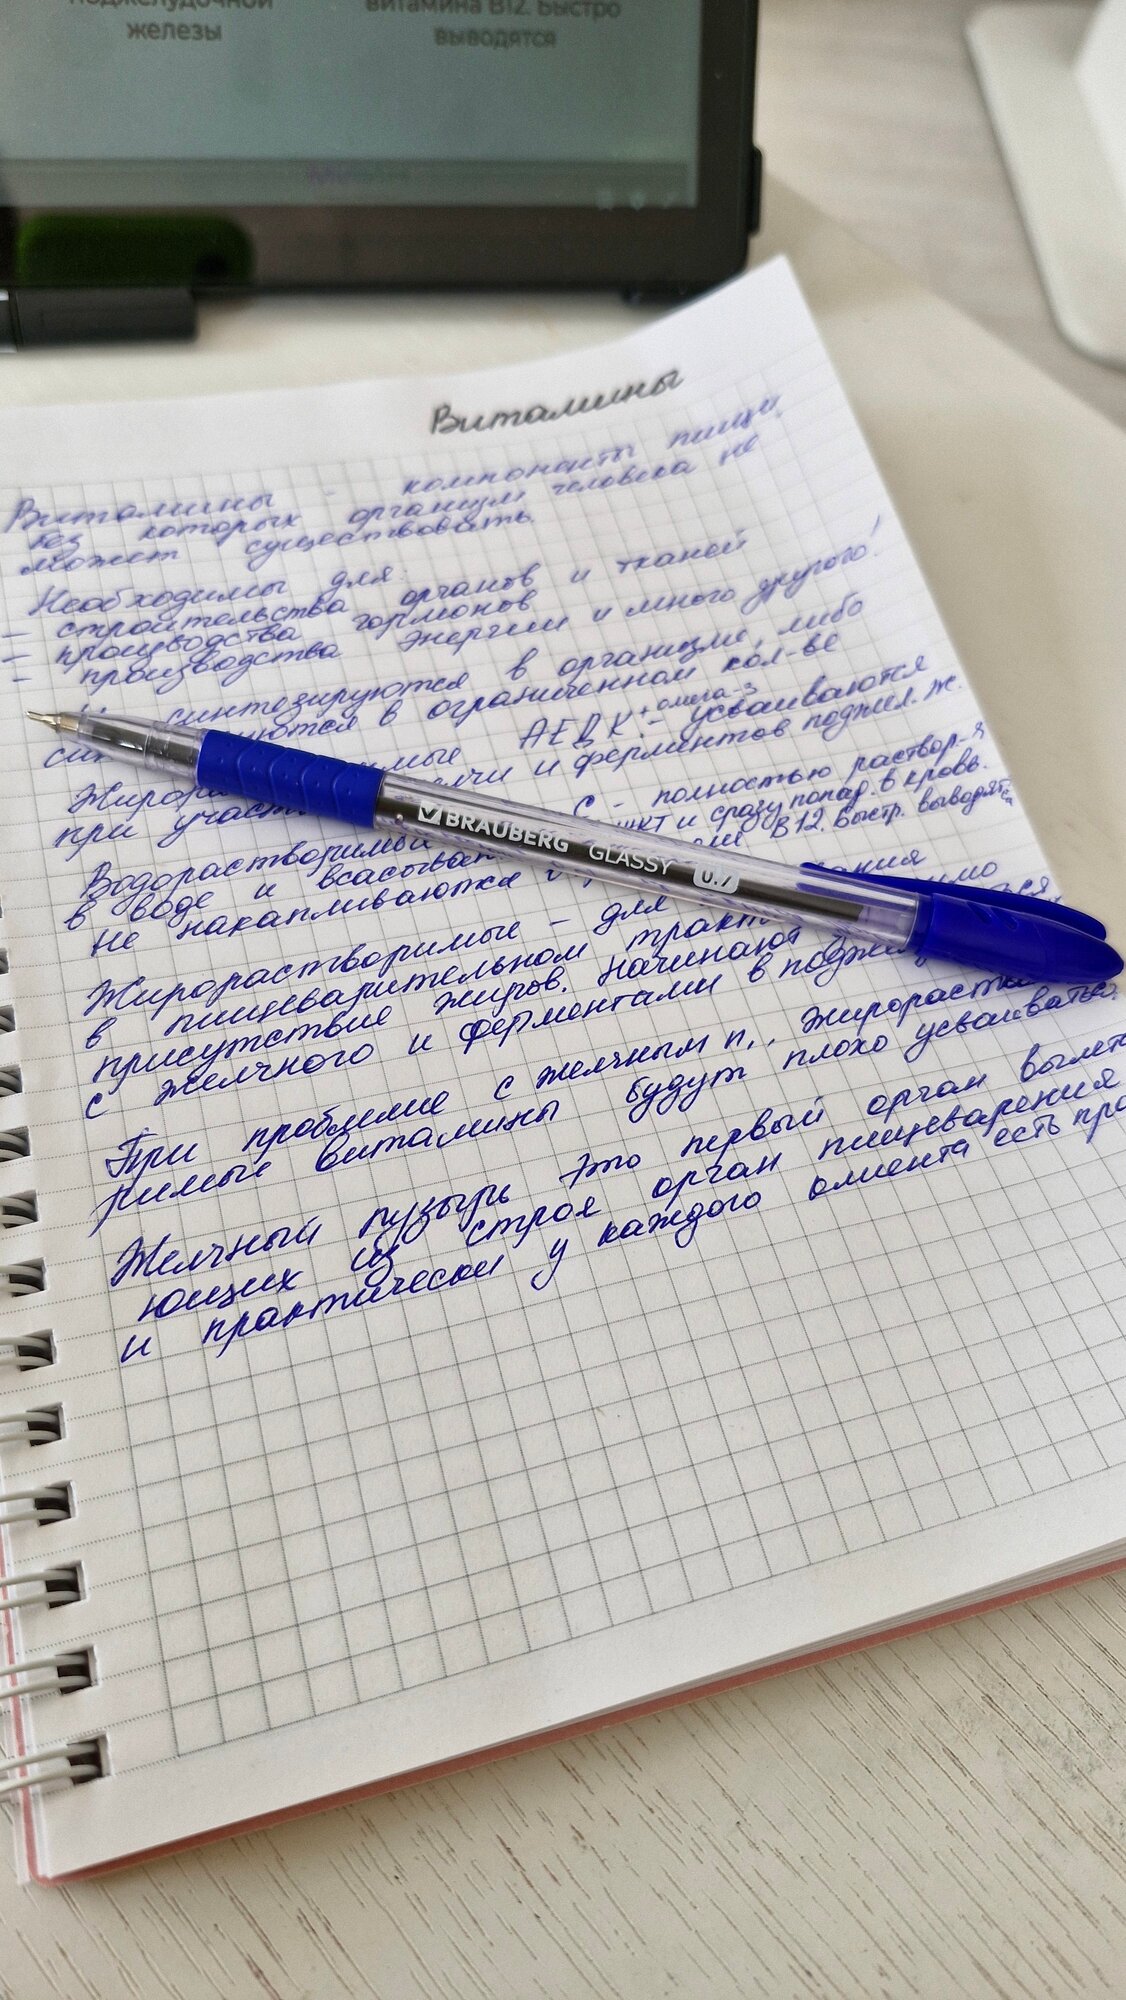 поджелудочной
железы
витамина B12. Быстро
выводятся
Витамины
Витамины - компоненты пищи,
без которых организм человека не
может существовать.
Необходимы для:
- строительства органов и тканей
- производства гормонов
- производства энергии и много другого!
синтезируются в организме, либо
в ограниченном кол-ве
АЕДК + омега-3 - усваиваются
при участ и ферментов поджел. ж.
Водорастворимы С - полностью раствор-я
в воде и всасыва ЖКТ и сразу попад. в кровь.
Не накапливаются B12. Быстр. выводятся
Жирорастворимые - для
в пищеварительном тракт
присутствие жиров. Начинают
с желчного и ферментами в поджел
При проблеме с желчным п., жирораство
римые витамины будут плохо усваиваться.
Желчный пузырь это первый орган вылет
ющих из строя орган пищеварения
и практически у каждого клиента есть про
BRAUBERG GLASSY 0.7